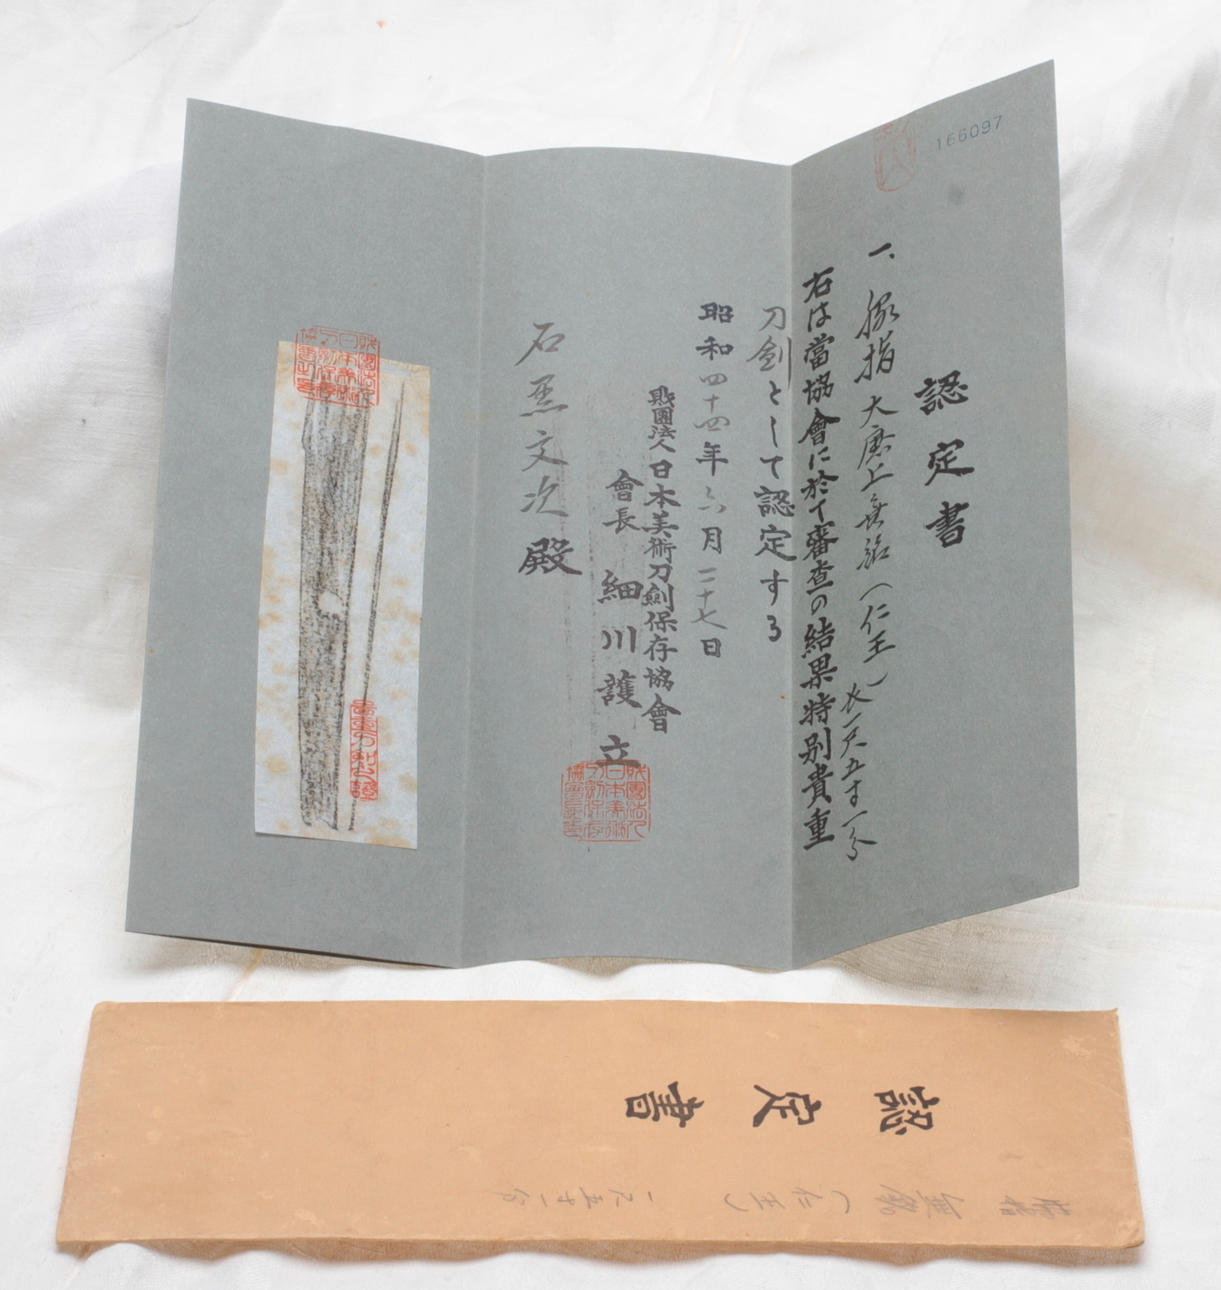 166097
認定書
一、脇指 大磨上無銘（仁王）長一尺五寸一分
右は當協會に於て審査の結果特別貴重
刀劍として認定する
昭和四十四年六月二十七日
財團法人日本美術刀劍保存協會
會長 細川護立
財團法人日本美術刀劍保存協會長之
石黒文次殿
認定書
脇指 無銘（仁王） 一尺五寸一分